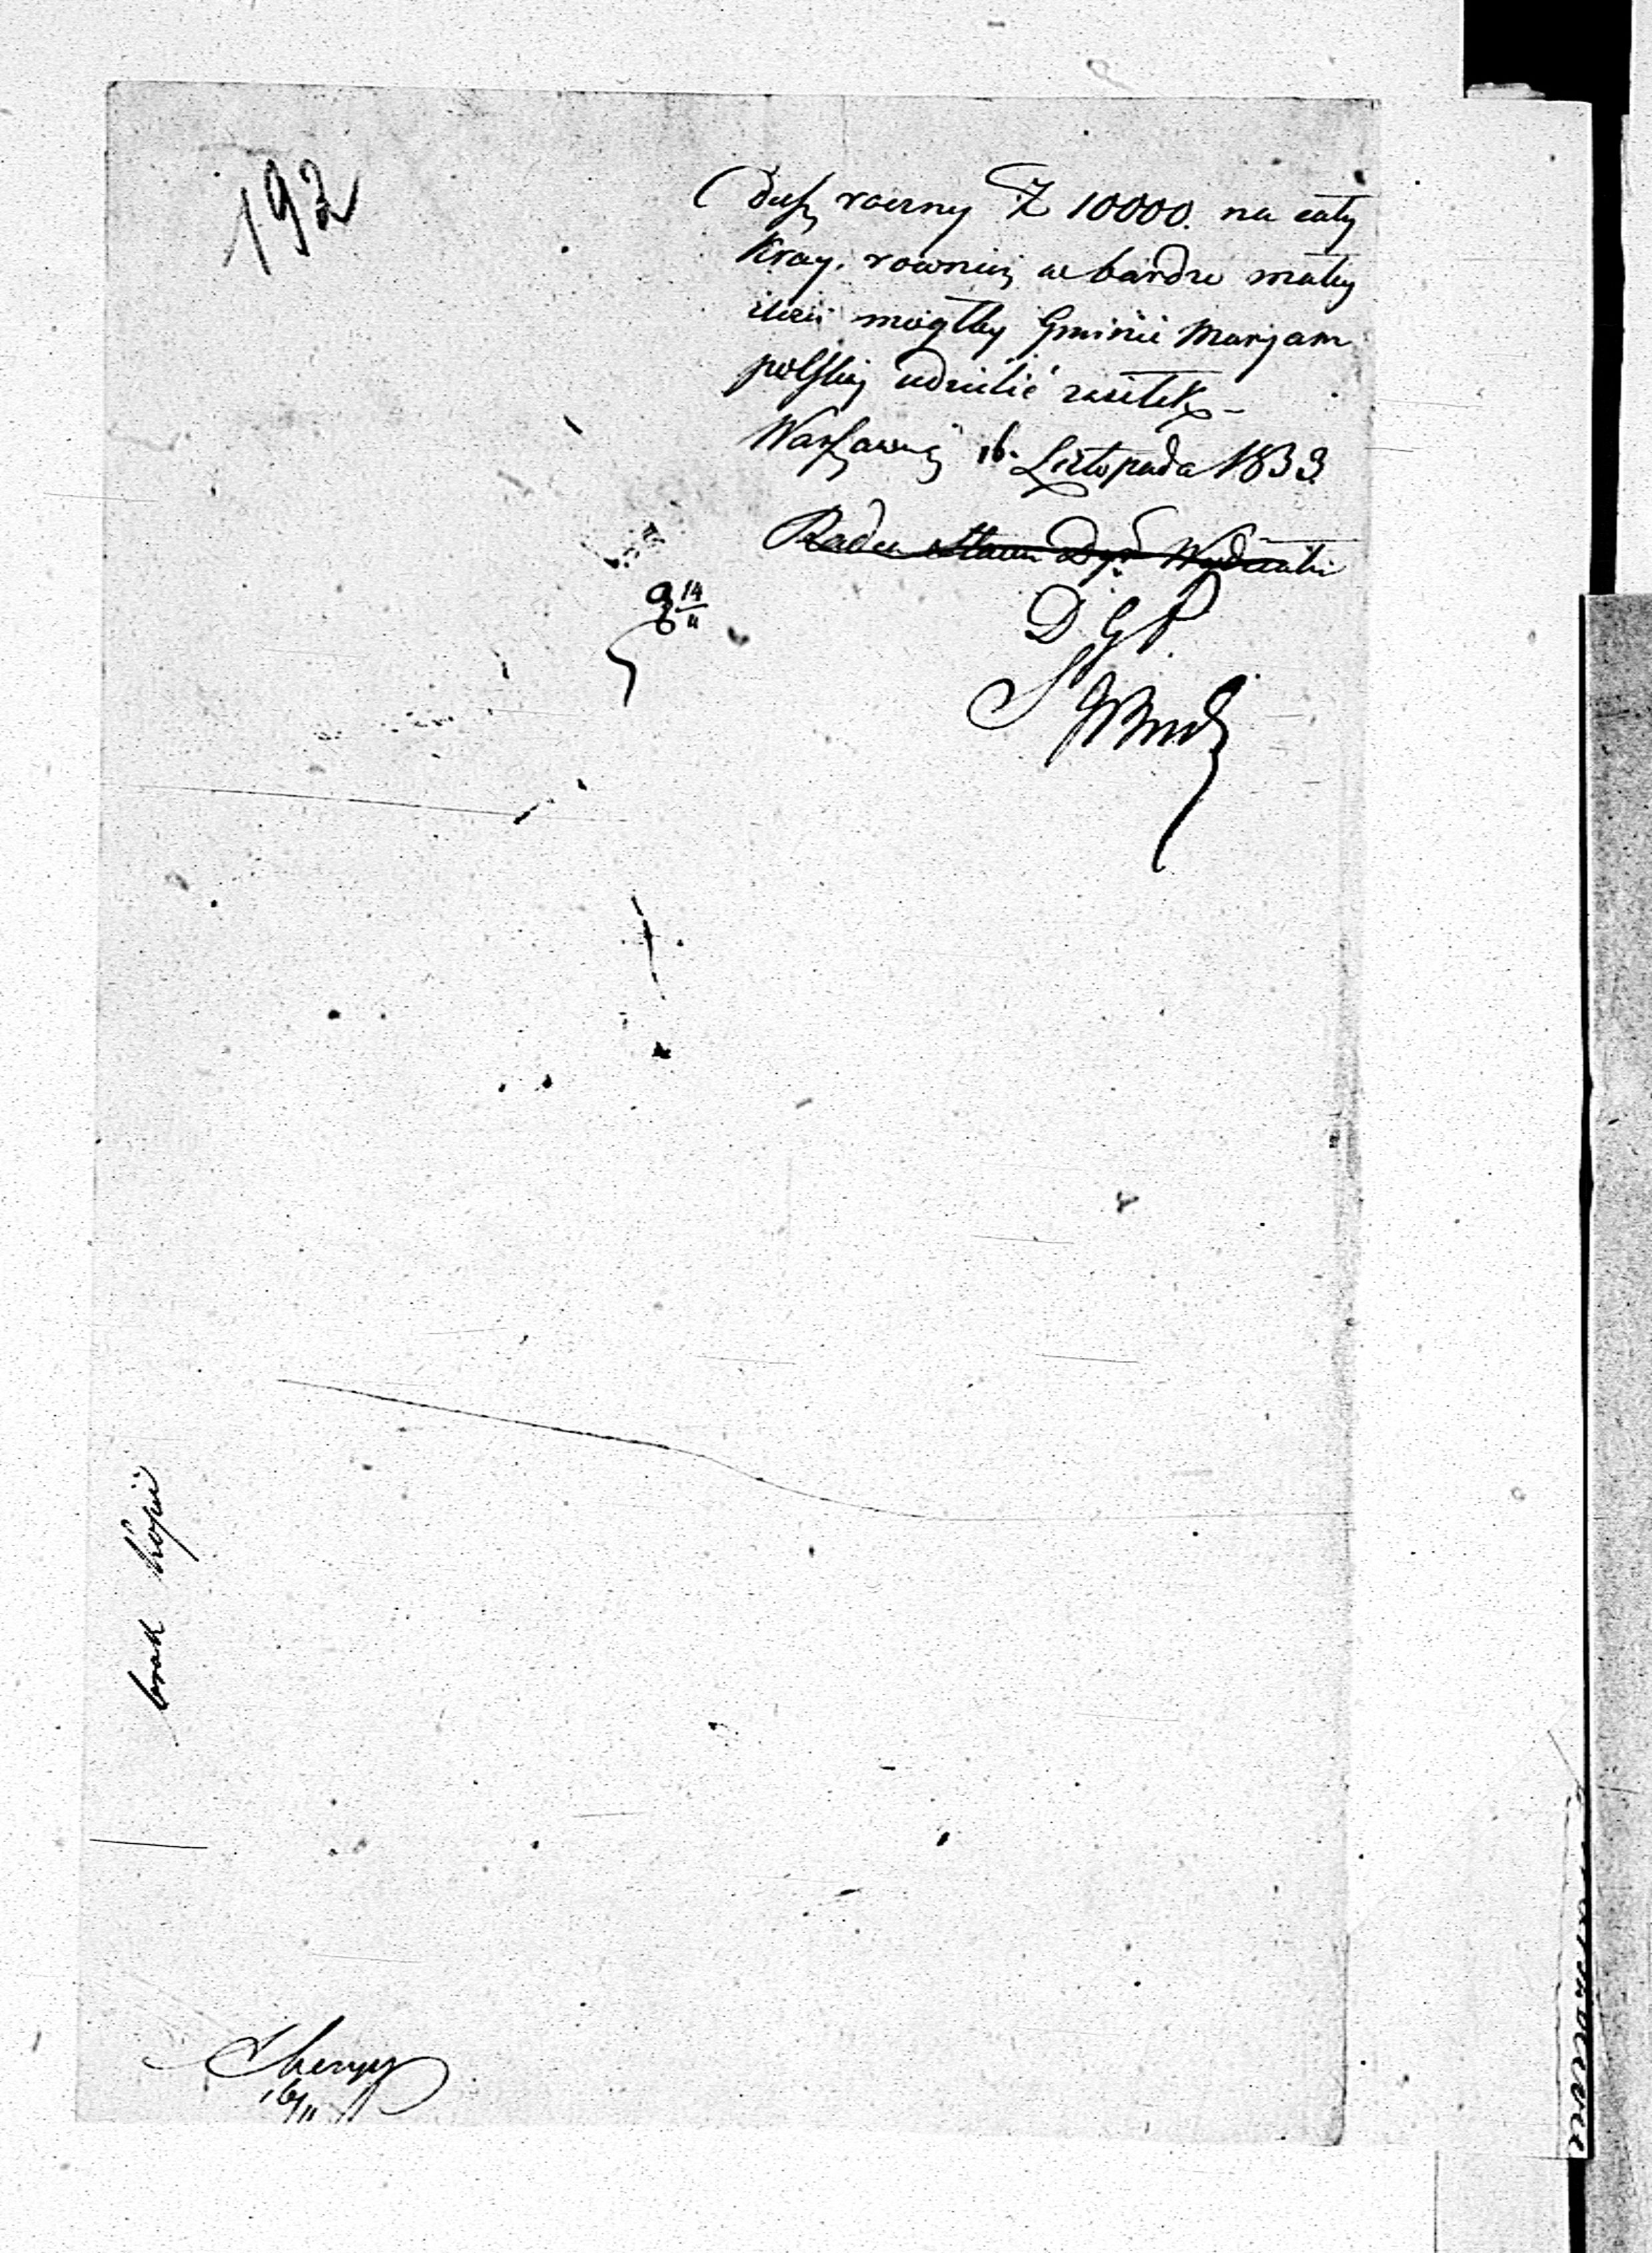 192
dusz roczny Zł 10000. na cały
Kray. rownież w bardzo małey
ilości mógłby Gminie Marjam
polskiej udzielić zasiłek
Warszawa 16. Listopada 1833
Radca Stanu Dyr. Wydziału
D. G. P.
14/11
brak kopii
16/11